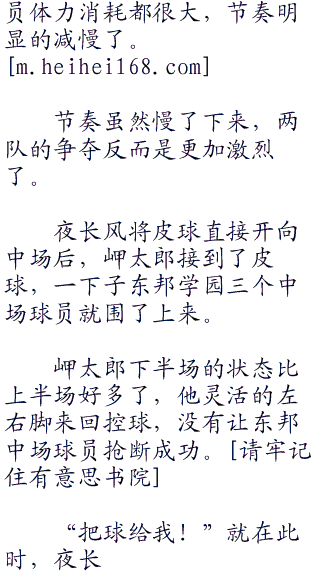 员体力消耗都很大，节奏明
显的减慢了。
[m.heihei168.com]
节奏虽然慢了下来，两
队的争夺反而是更加激烈
了。
夜长风将皮球直接开向
中场后，岬太郎接到了皮
球，一下子东邦学园三个中
场球员就围了上来。
岬太郎下半场的状态比
上半场好多了，他灵活的左
右脚来回控球，没有让东邦
中场球员抢断成功。[请牢记
住有意思书院]
“把球给我！”就在此
时，夜长